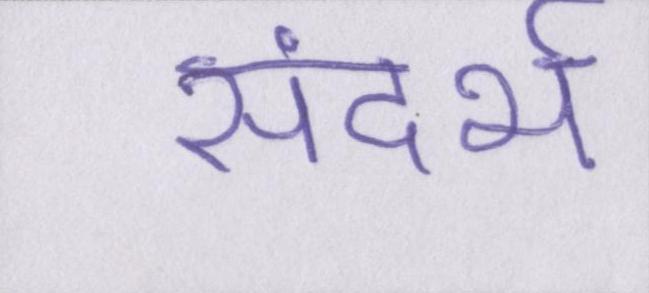 संदर्भ